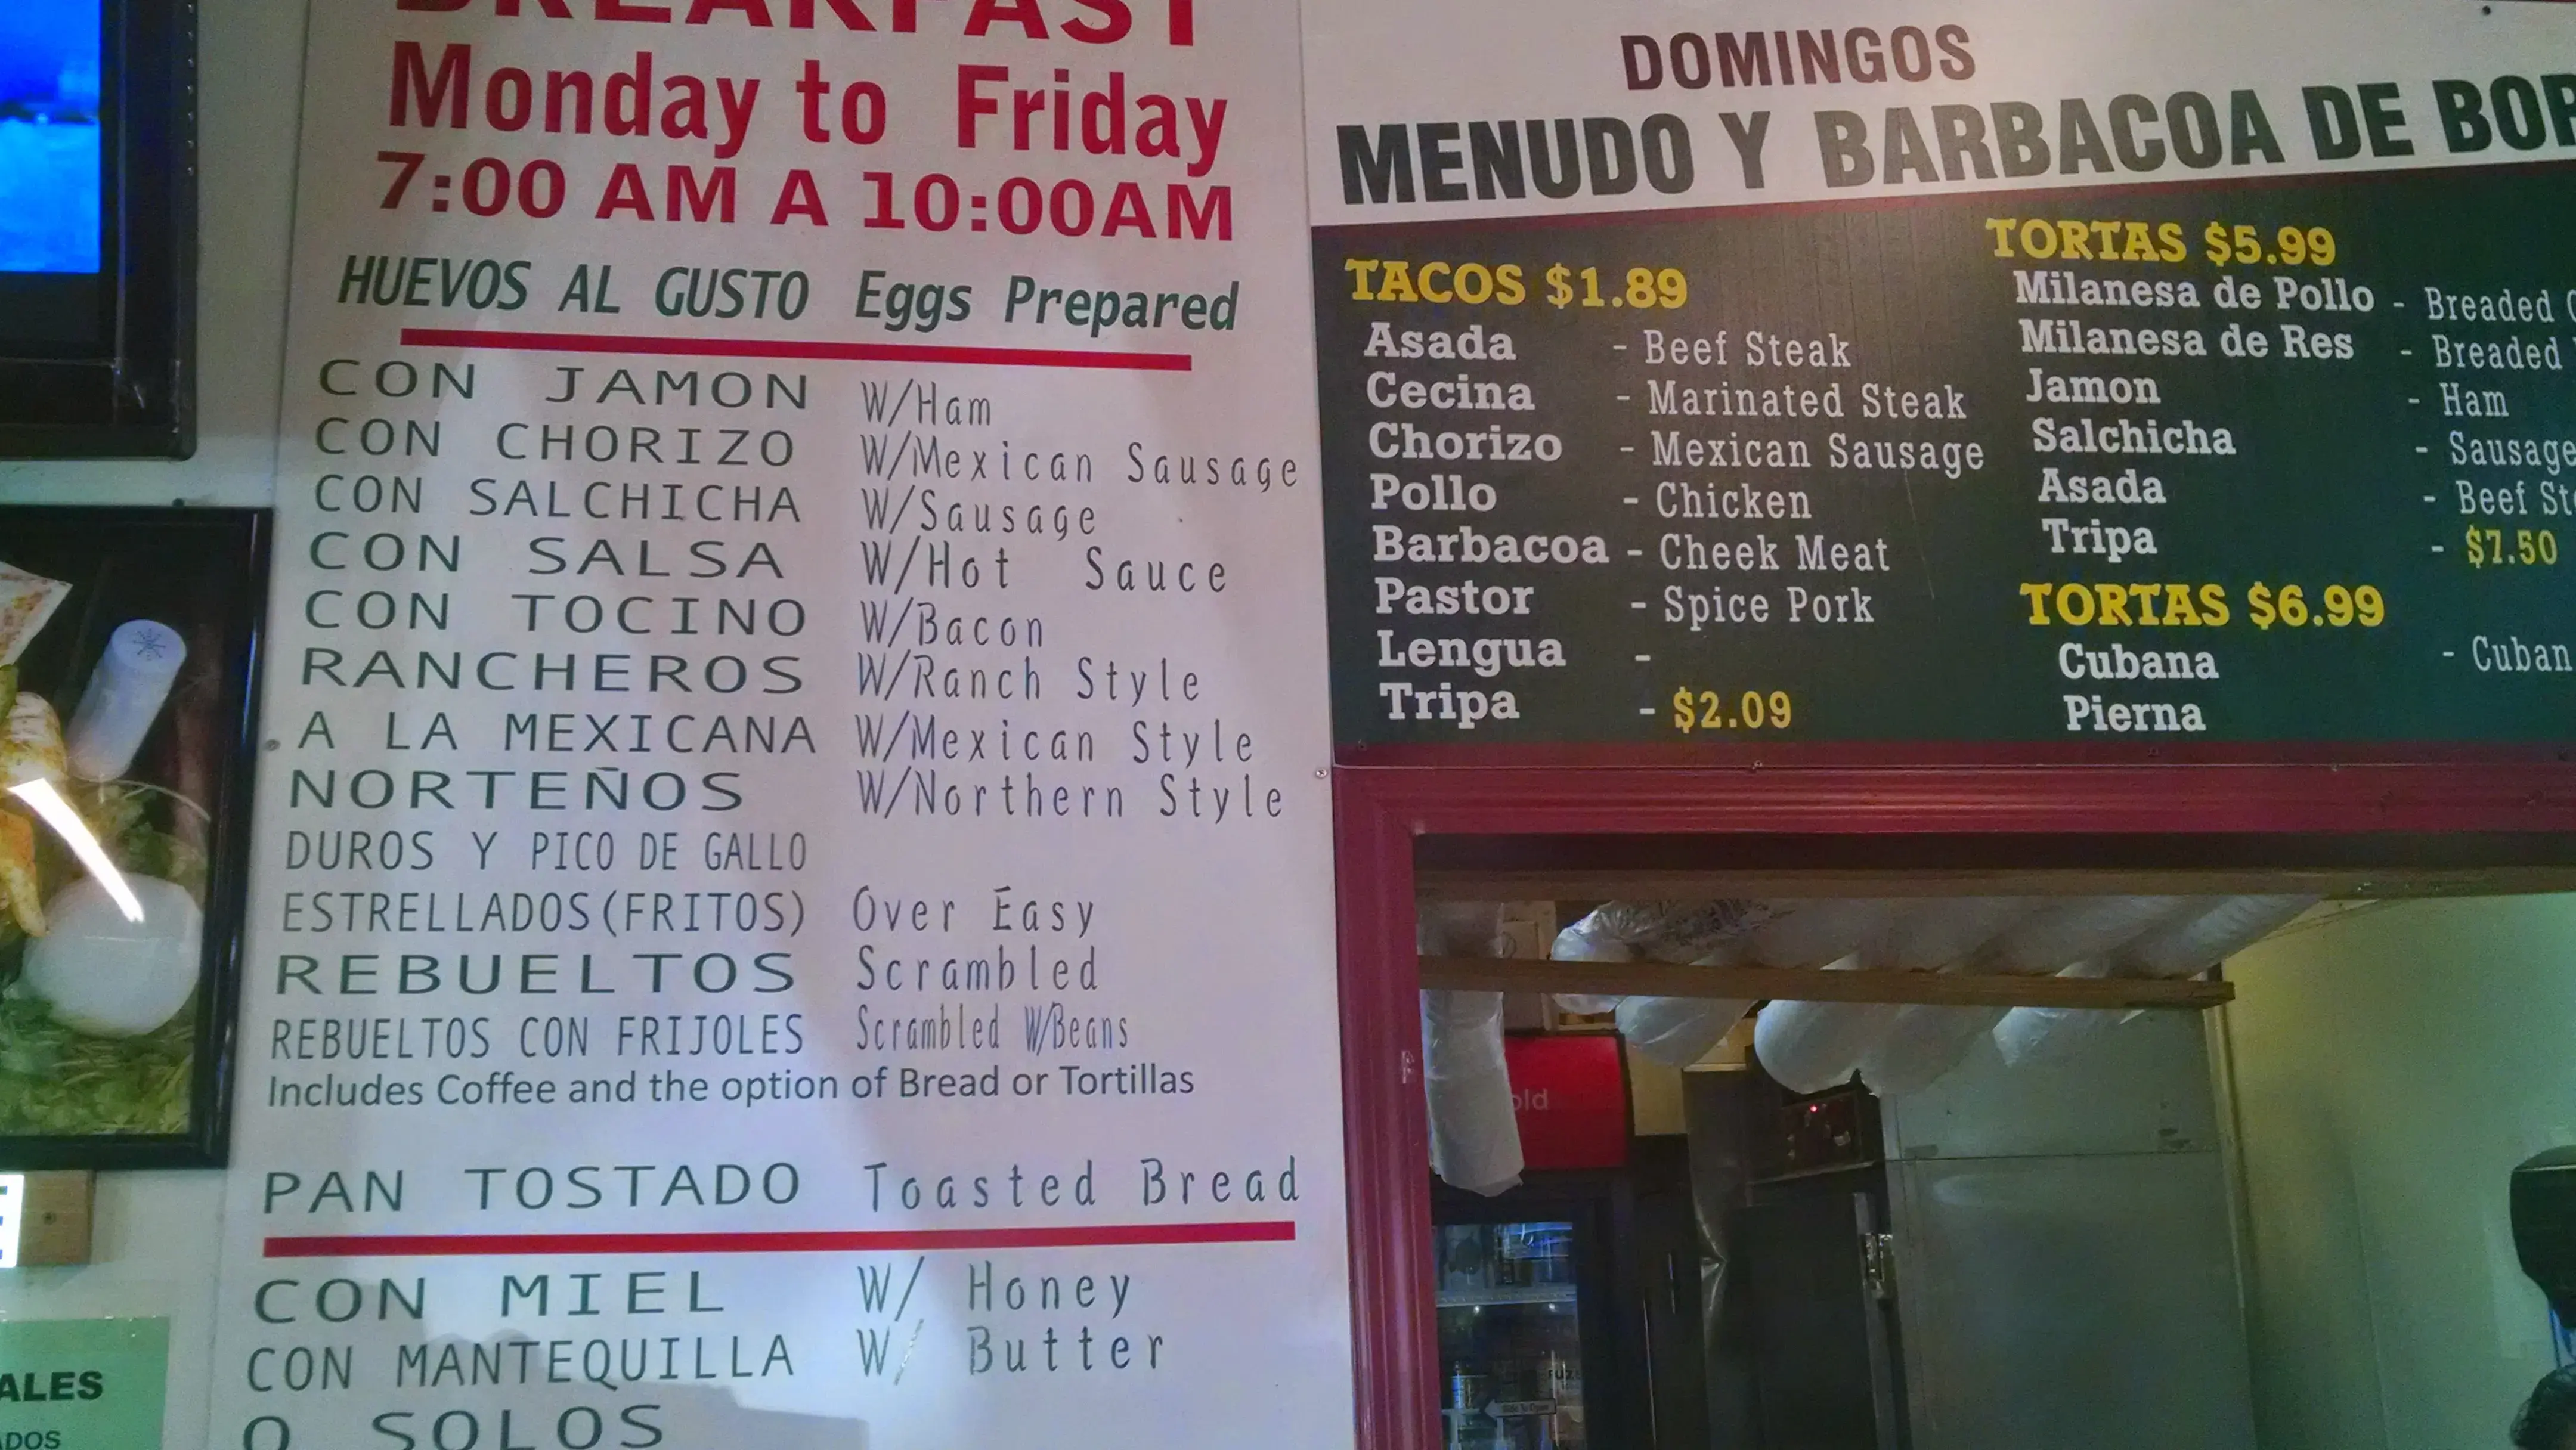 BREAKFAST
Monday to Friday
7:00 AM A 10:00AM
HUEVOS AL GUSTO Eggs Prepared
CON JAMON W/Ham
CON CHORIZO W/Mexican Sausage
CON SALCHICHA W/Sausage
CON SALSA W/Hot Sauce
CON TOCINO W/Bacon
RANCHEROS W/Ranch Style
A LA MEXICANA W/Mexican Style
NORTEÑOS W/Northern Style
DUROS Y PICO DE GALLO
ESTRELLADOS(FRITOS) Over Easy
REBUELTOS Scrambled
REBUELTOS CON FRIJOLES Scrambled W/Beans
Includes Coffee and the option of Bread or Tortillas
PAN TOSTADO Toasted Bread
CON MIEL W/ Honey
CON MANTEQUILLA W/ Butter
O SOLOS
DOMINGOS
MENUDO Y BARBACOA DE
TACOS $1.89
Asada - Beef Steak
Cecina - Marinated Steak
Chorizo - Mexican Sausage
Pollo - Chicken
Barbacoa - Cheek Meat
Pastor - Spice Pork
Lengua -
Tripa - $2.09
TORTAS $5.99
Milanesa de Pollo - Breaded
Milanesa de Res - Breaded
Jamon - Ham
Salchicha - Sausage
Asada - Beef
Tripa - $7.50
TORTAS $6.99
Cubana - Cuban
Pierna